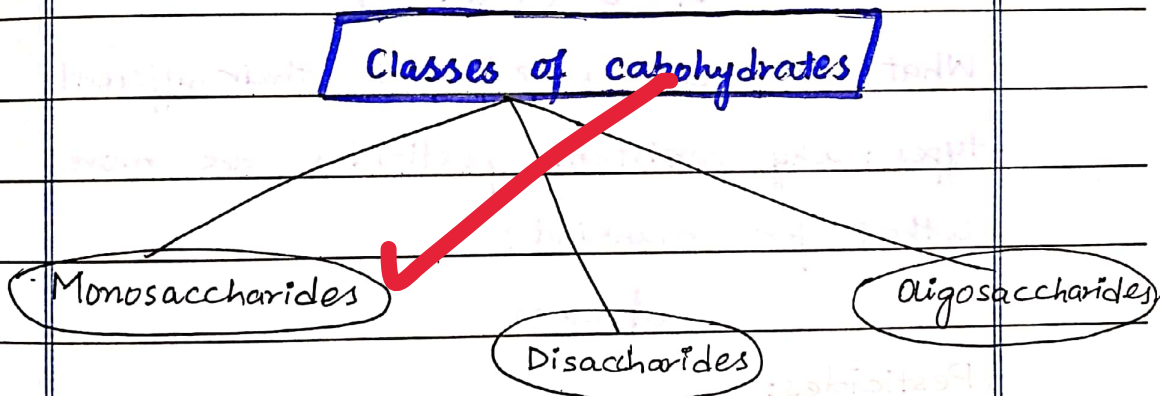 Classes of cabohydrates
Monosaccharides
Oligosaccharides
Disaccharides